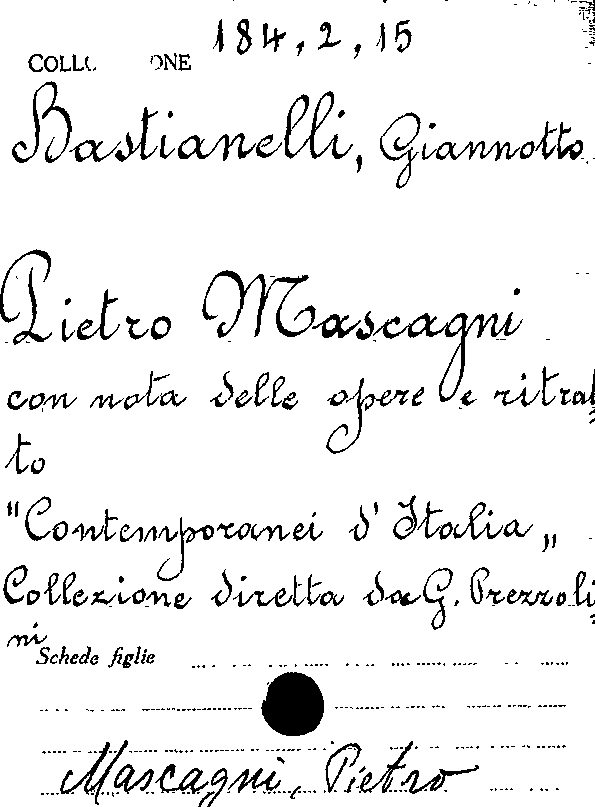 184, 2, 15
COLLO ONE
Bastianelli, Giannotto
Pietro Mascagni
con nota delle opere e ritrat
to
"Contemporanei d'Italia„
Collezione diretta da G. Prezzoli
ni
Schede figlie
Mascagni, Pietro